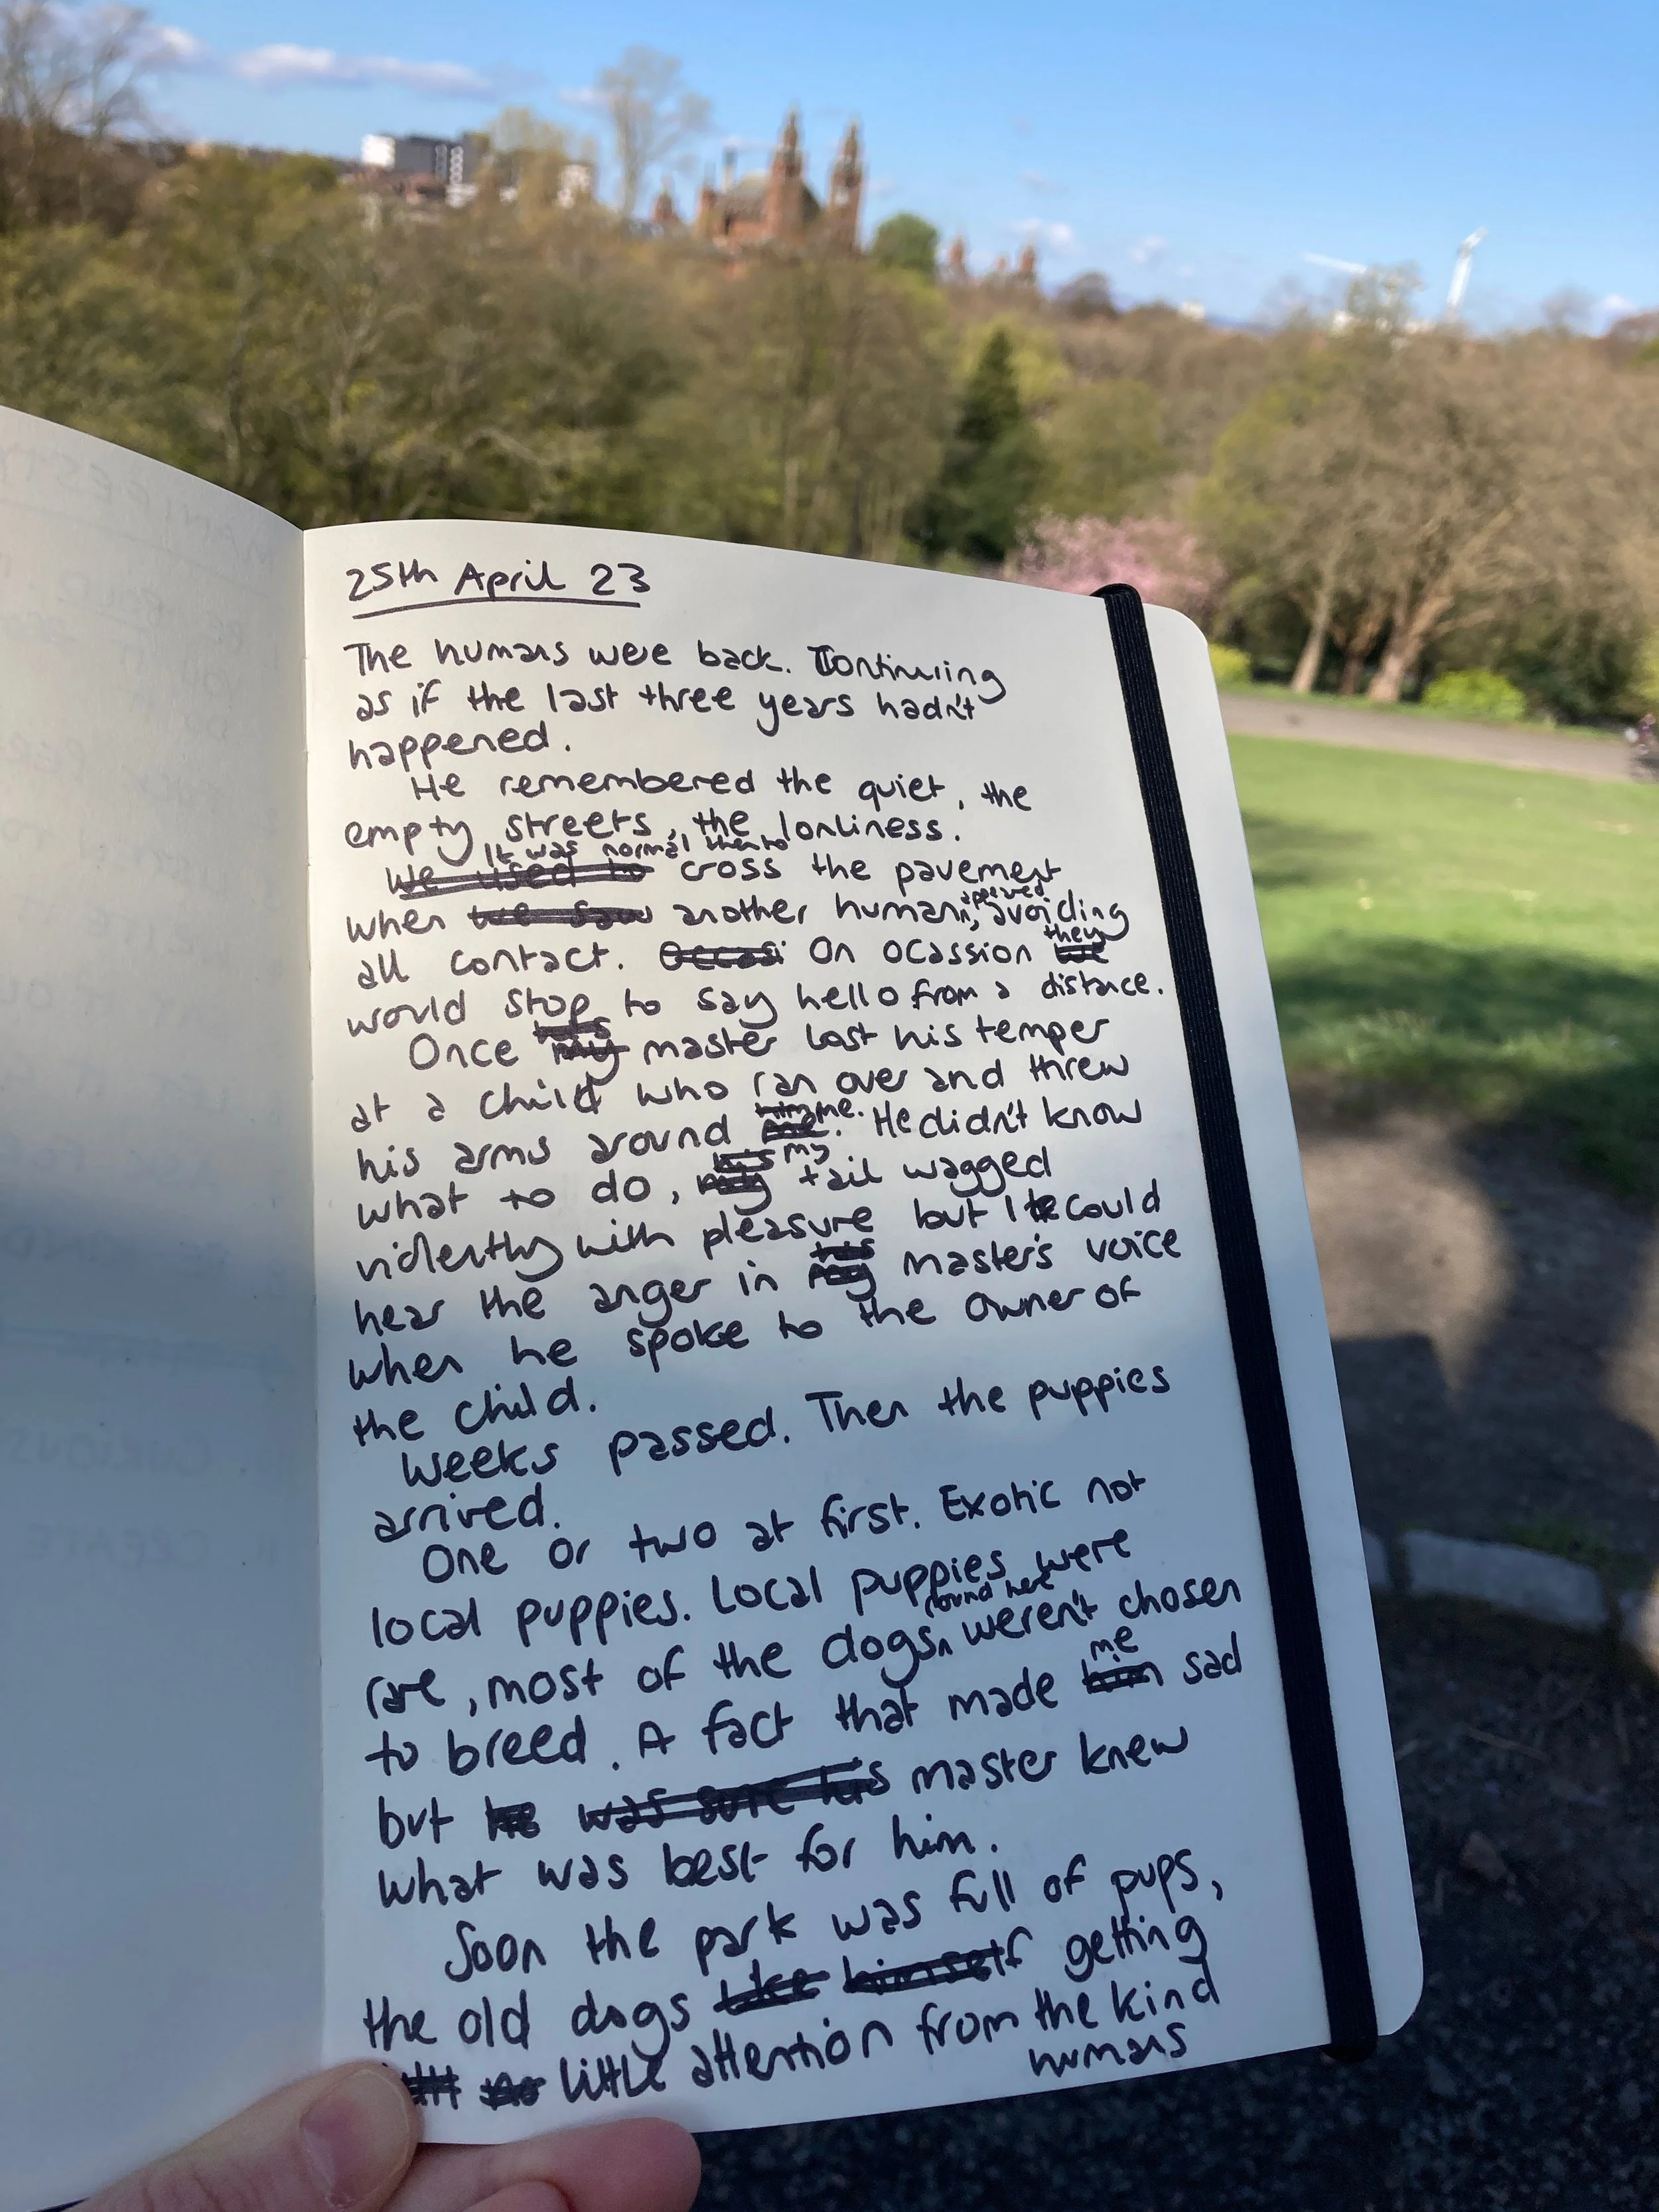 25th April 23
The humans were back. Continuing
as if the last three years hadn't
happened.
He remembered the quiet, the
empty streets, the lonliness.
It was normal then to
We used to cross the pavement
appeared
when we saw another human, avoiding
they
all contact. Occasi On ocassion we
would stop to say hello from a distance.
his
Once my master lost his temper
at a child who ran over and threw
him me.
his arms around me. He didn't know
his my
what to do, my tail wagged
violently with pleasure but I he could
his
hear the anger in my master's voice
when he spoke to the owner of
the child.
Weeks passed. Then the puppies
arrived.
One or two at first. Exotic not
local puppies. Local puppies were
round here
rare, most of the dogs weren't chosen
me
to breed. A fact that made him sad
but he was sure his master knew
what was best for him.
Soon the park was full of pups,
the old dogs like himself getting
no little attention from the kind
humans